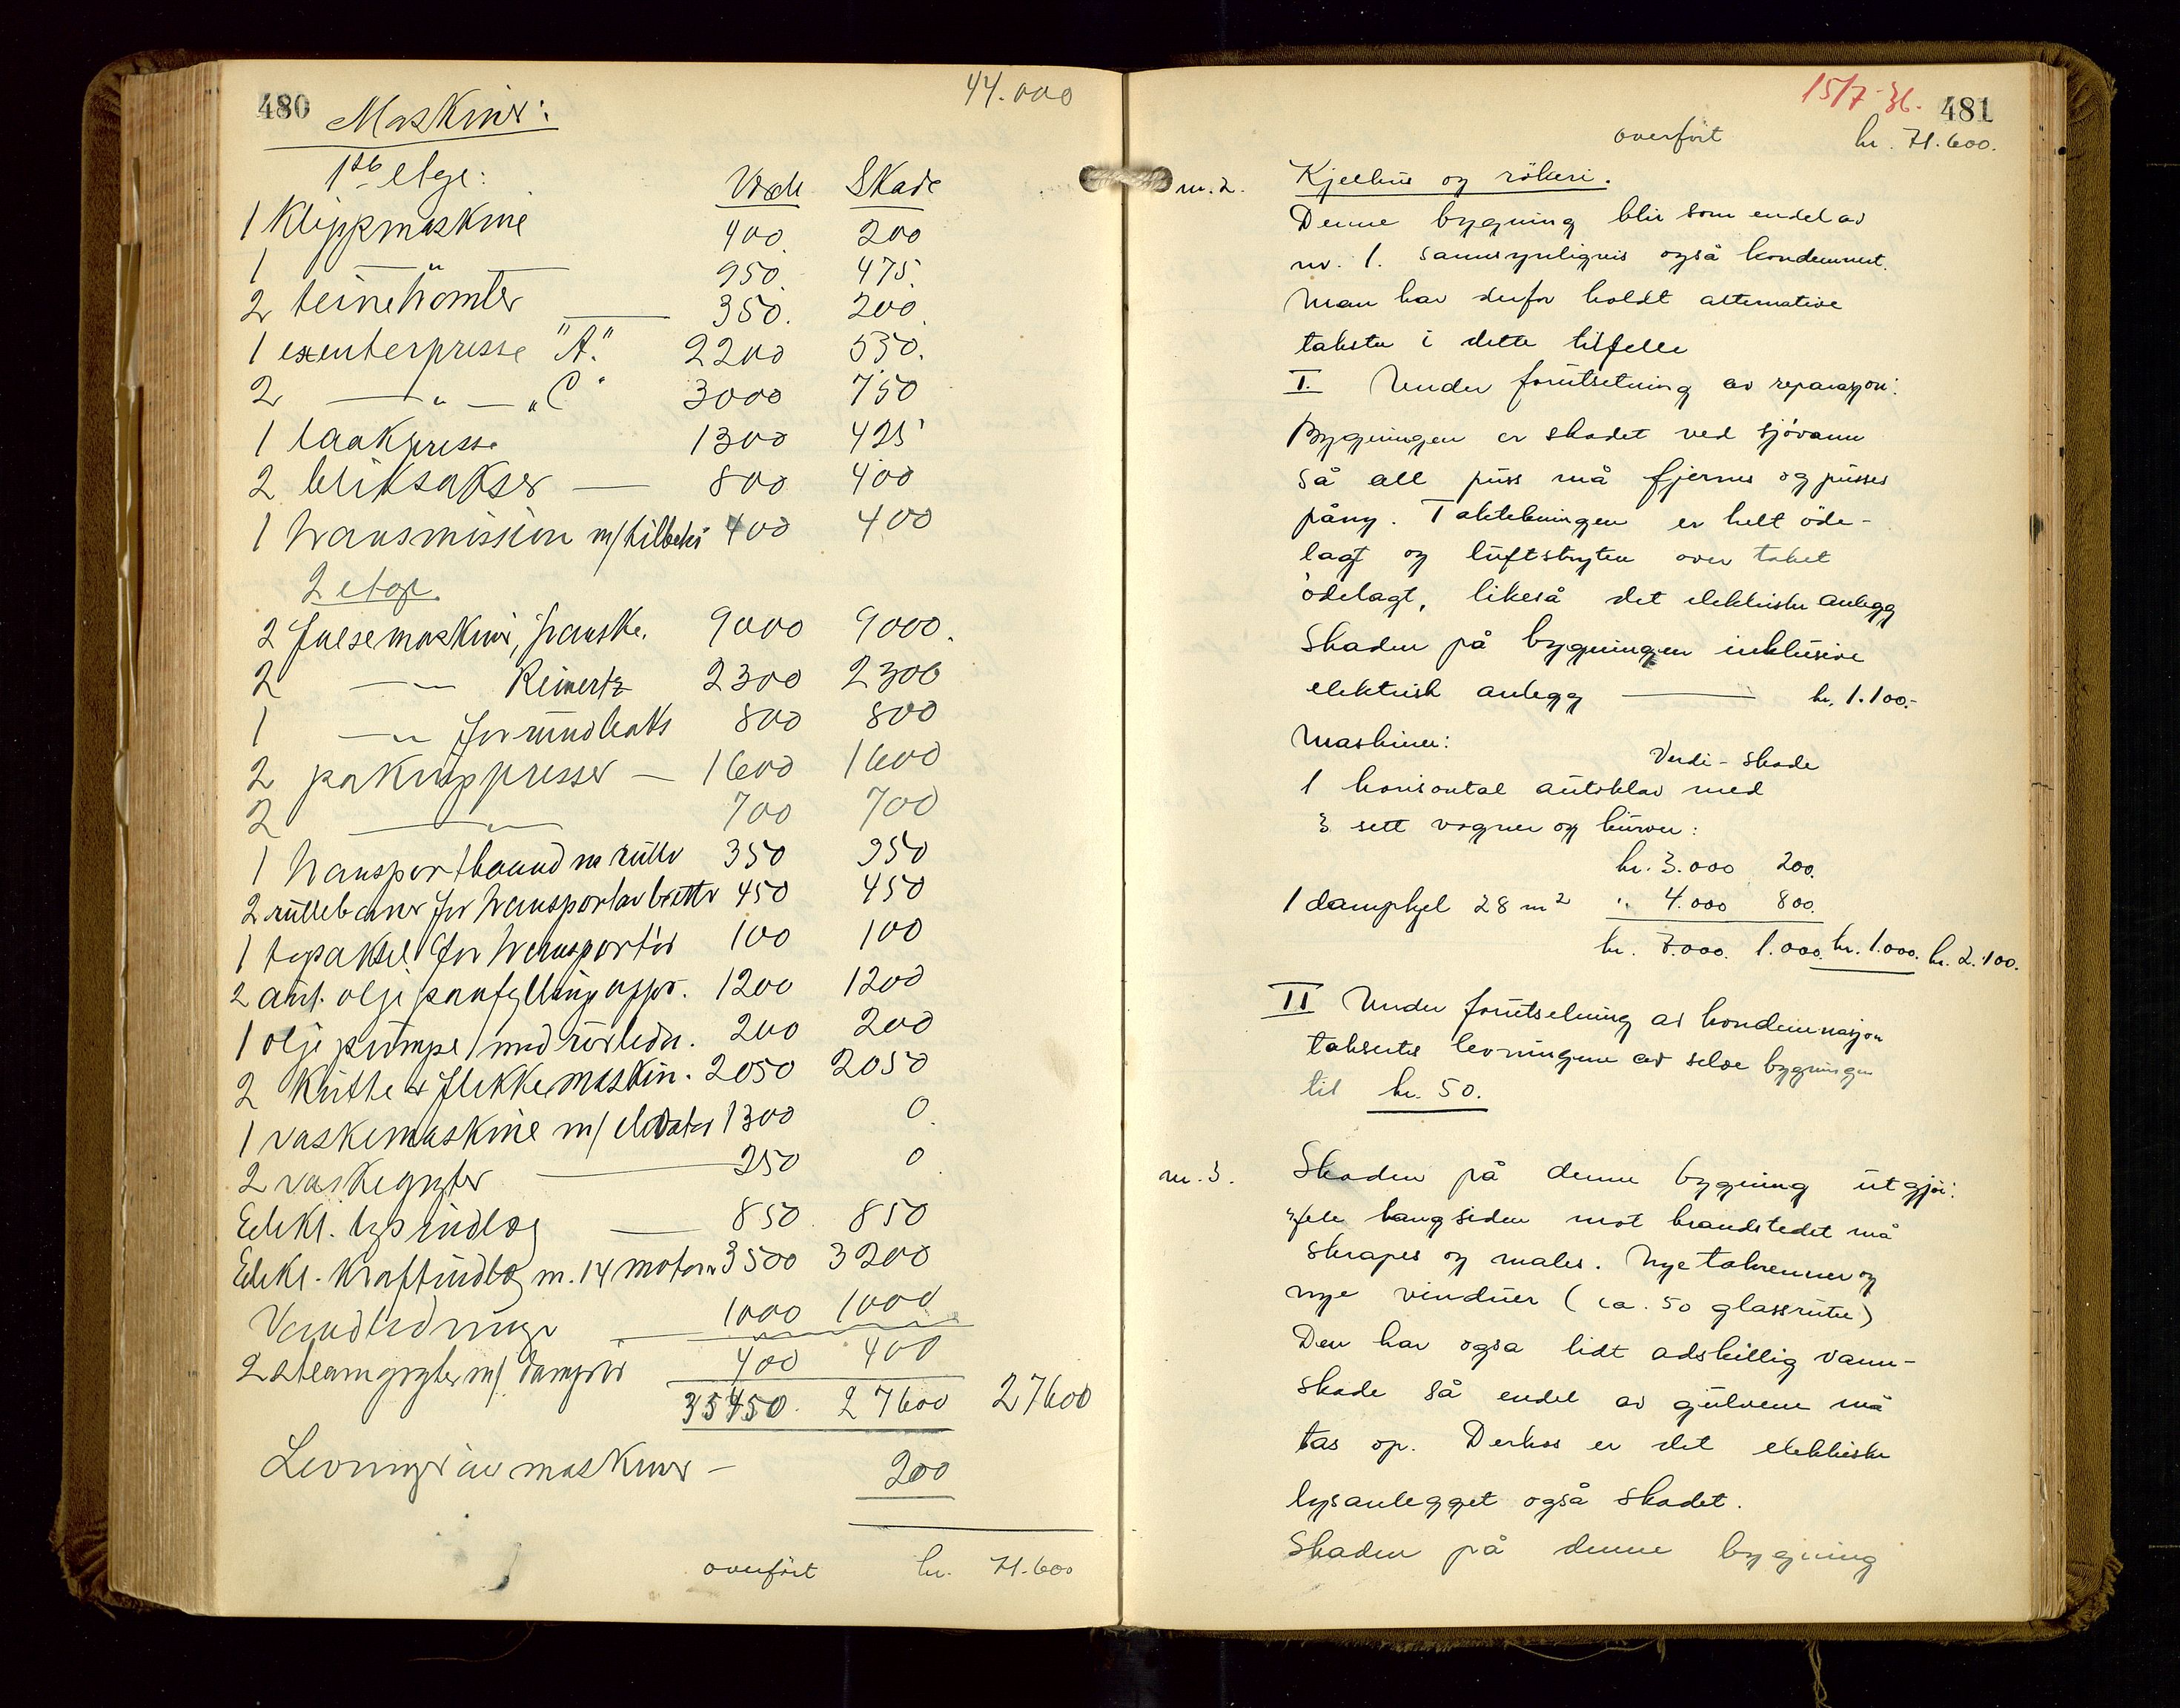 480 Maskiner: 44.000
1ste etge: Verdi Skade
1 Klippmaskine 400. 200
1 — " — 950. 475.
2 beinetromler — 350. 200.
1 exenterpresse "A." 2200 550.
2 — " — "C" 3000 750
1 laakpresse 1300 425
2 bliksakser — 800 400
1 transmission m/tilbehör 400 400
2 etage.
2 falsemaskiner, franske. 9000 9000.
2 — " — Reinertz 2300 2300
1 — " — for rundboks 800 800
2 paknippresser — 1600 1600
2 — " — 700 700
1 transportbaand m rüller 350 350
2 rüllebaner for transport av bretter 450 450
1 topaksel for transportör 100 100
2 aut. oljepaafyllings app. 1200 1200
1 olje pumpe med rörledn. 200 200
2 Kutte & flekkemaskin. 2050 2050
1 vaskemaskine m/ elevator 1300 0.
2 vaskegryter — 250 0.
Elekt. lysindlæg — 850. 850
Elekt. Kraftindlæg m. 14 motorer 3500 3200
Vandledninger — 1000 1000
2 steamgryter m/ damprör 400 400
35450. 27600 27600
Levninger av maskiner — 200
overfört kr. 71.600
15/7-36. 481
overfört kr. 71.600.
nr. 2. Kjelhus og rökeri.
Denne bygning blir som endel av
nr. 1. sannsynligvis også kondemnert.
Man har derfor holdt alternative
takster i dette tilfelle
I. Under forutsetning av reparasjon:
Bygningen er skadet ved sjövann
så all puss må fjernes og pusses
påny. Taktekningen er helt öde-
lagt og luftstryken over taket
ödelagt, likeså det elektriske anlegg
Skaden på bygningen inklusive
elektrisk anlegg — kr. 1.100.-
Maskiner: Verdi - Skade
1 horisontal autoklav med
3 sett vogner og kurver:
kr. 3.000 200.
1 dampkjel 28 m² " 4.000 800.
kr. 7.000. 1.000. kr. 1.000. kr. 2.100.
II Under forutsetning av kondemnasjon
takseres levningene av selve bygningen
til kr. 50.
nr. 3. Skaden på denne bygning utgjör:
Hele langsiden mot brandstedet må
skrapes og males. Nye takrenner og
nye vinduer (ca. 50 glassruter)
Den har også lidt adskillig vann-
skade så endel av gulvene må
tas op. Derhos er det elektriske
lysanlegget også skadet.
Skaden på denne bygning